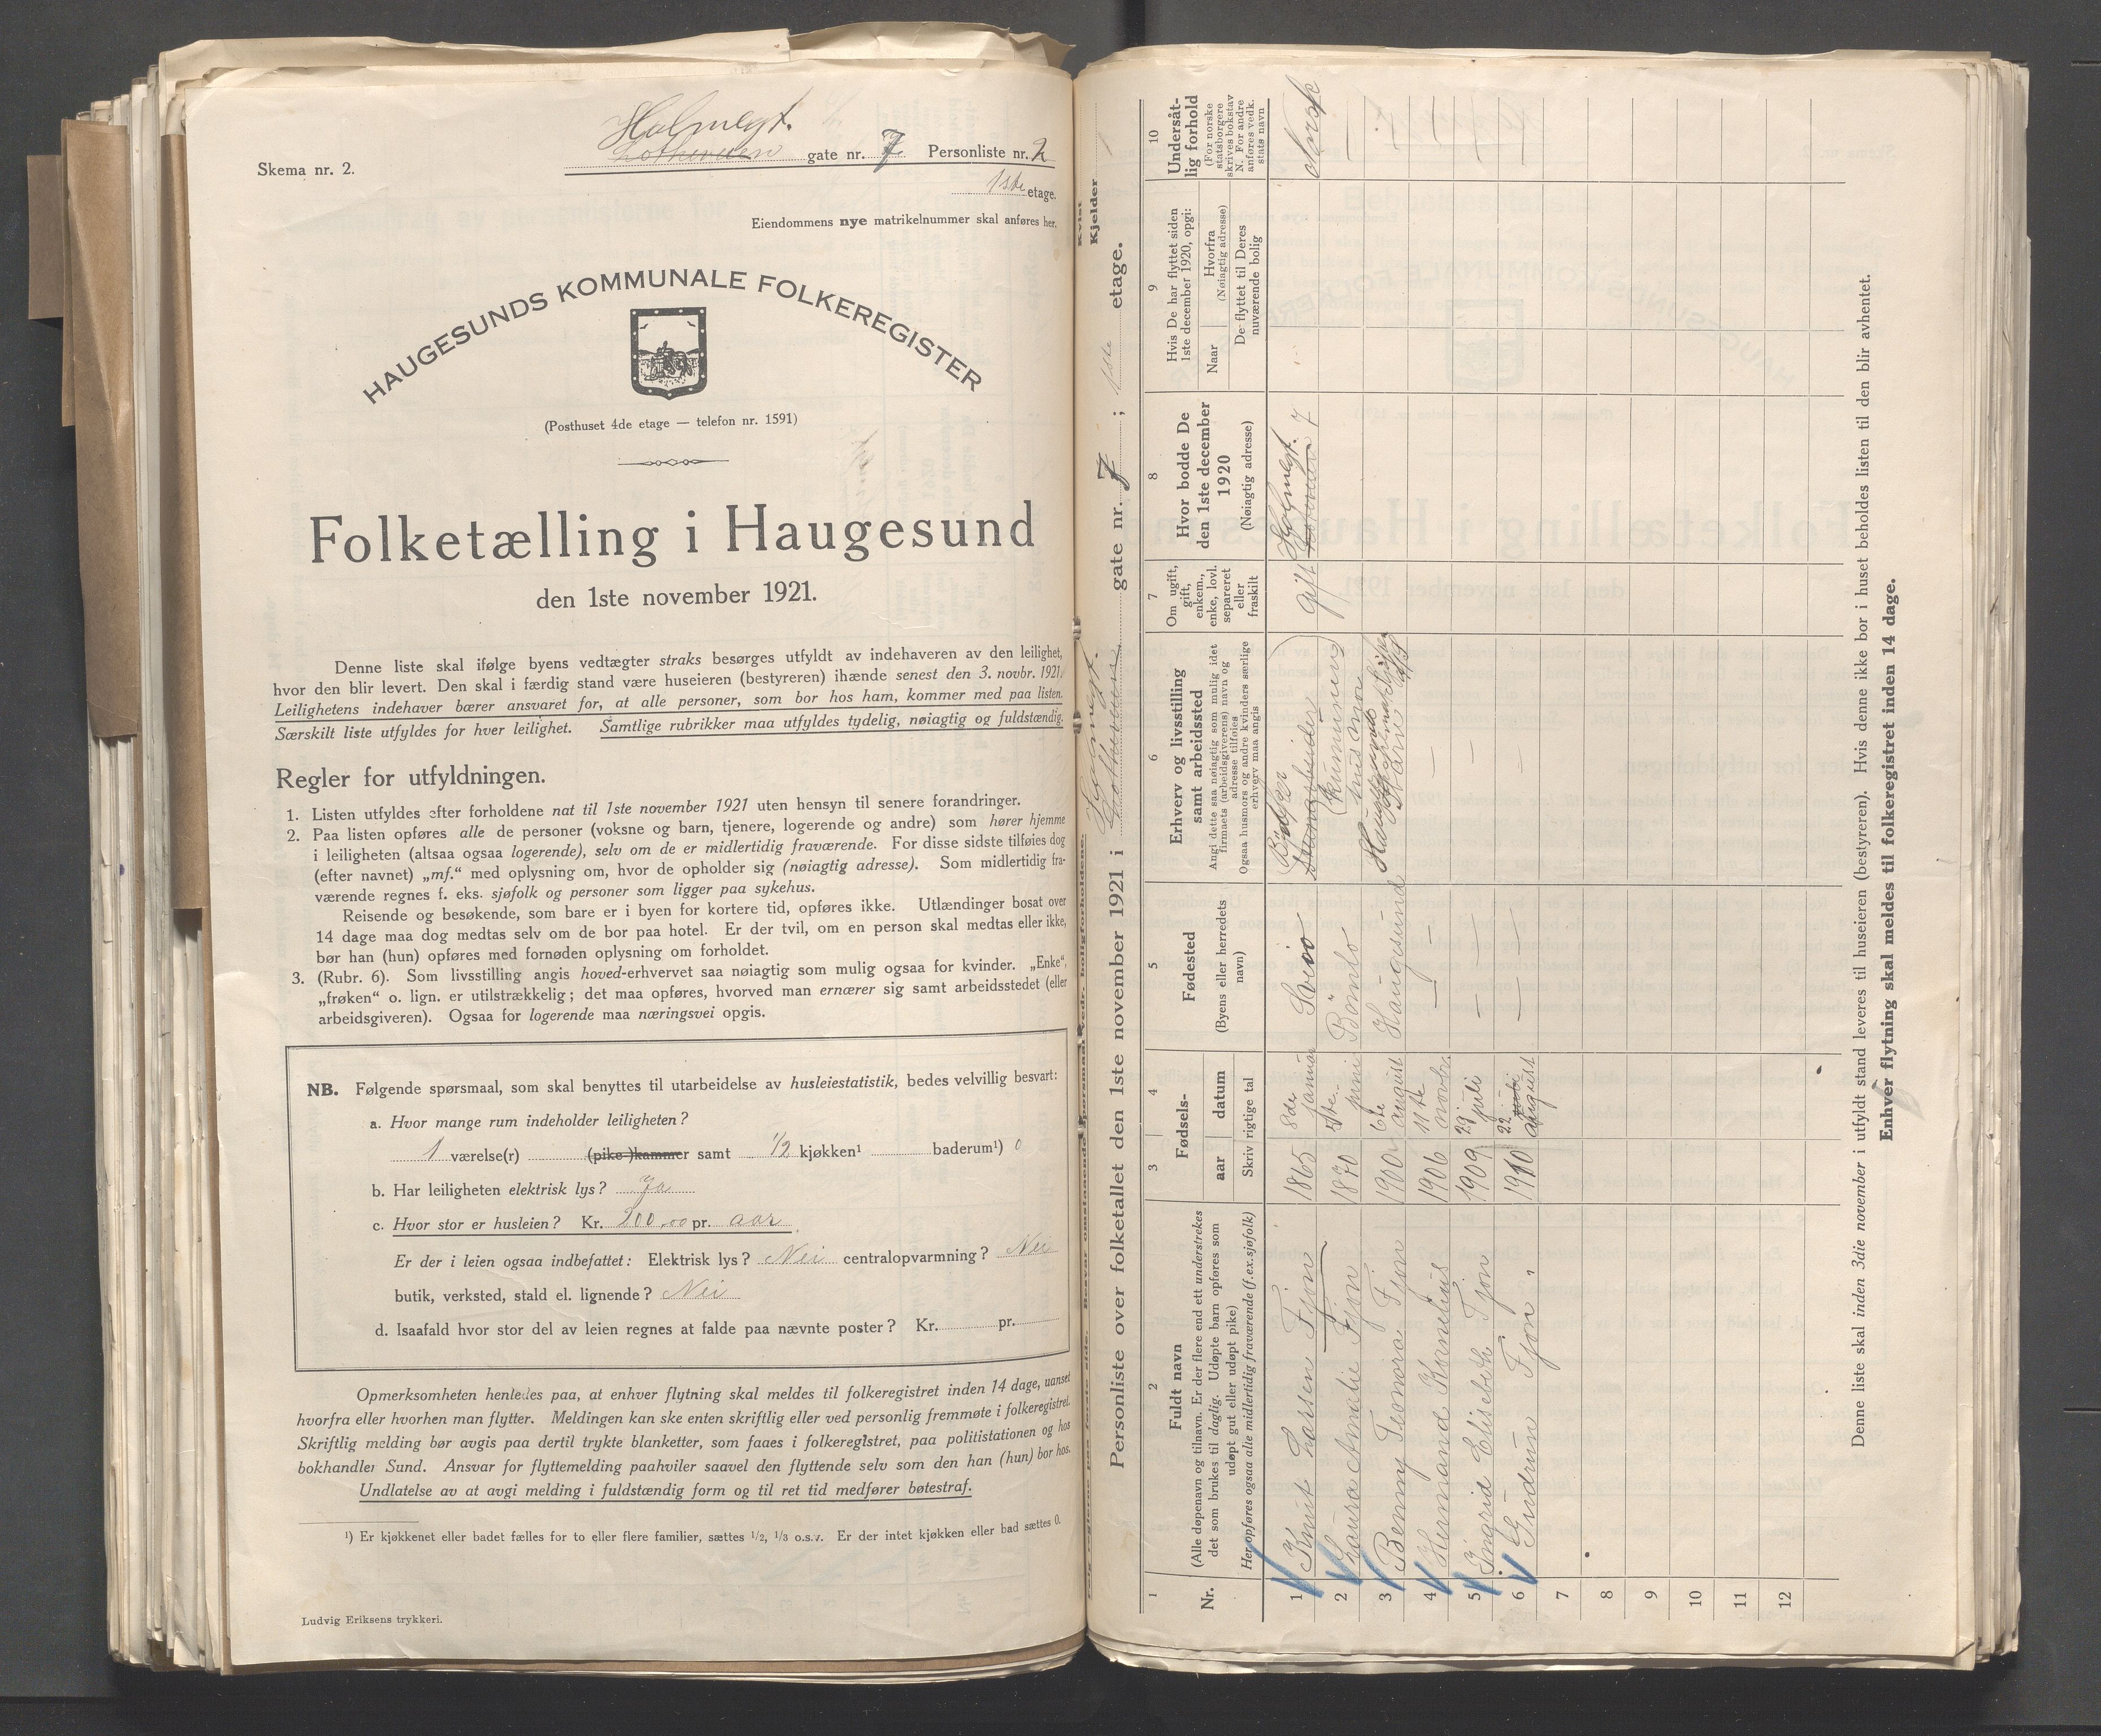 Skema nr. 2.
Holmegt.
gate nr. 7 Personliste nr. 2
1ste etage.
Eiendommens nye matrikelnummer skal anføres her.
HAUGESUNDS KOMMUNALE FOLKEREGISTER
(Posthuset 4de etage — telefon nr. 1591)
Folketælling i Haugesund
den 1ste november 1921.
Denne liste skal ifølge byens vedtægter straks besørges utfyldt av indehaveren av den leilighet,
hvor den blir levert. Den skal i færdig stand være huseieren (bestyreren) ihænde senest den 3. novbr. 1921.
Leilighetens indehaver bærer ansvaret for, at alle personer, som bor hos ham, kommer med paa listen.
Særskilt liste utfyldes for hver leilighet. Samtlige rubrikker maa utfyldes tydelig, nøiagtig og fuldstændig.
Regler for utfyldningen.
1. Listen utfyldes efter forholdene nat til 1ste november 1921 uten hensyn til senere forandringer.
2. Paa listen opføres alle de personer (voksne og barn, tjenere, logerende og andre) som hører hjemme
i leiligheten (altsaa ogsaa logerende), selv om de er midlertidig fraværende. For disse sidste tilføies dog
(efter navnet) „mf.“ med oplysning om, hvor de opholder sig (nøiagtig adresse). Som midlertidig fra-
værende regnes f. eks. sjøfolk og personer som ligger paa sykehus.
Reisende og besøkende, som bare er i byen for kortere tid, opføres ikke. Utlændinger bosat over
14 dage maa dog medtas selv om de bor paa hotel. Er der tvil, om en person skal medtas eller ikke,
bør han (hun) opføres med fornøden oplysning om forholdet.
3. (Rubr. 6). Som livsstilling angis hoved-erhvervet saa nøiagtig som mulig ogsaa for kvinder. „Enke“,
„frøken“ o. lign. er utilstrækkelig; det maa opføres, hvorved man ernærer sig samt arbeidsstedet (eller
arbeidsgiveren). Ogsaa for logerende maa næringsvei opgis.
NB. Følgende spørsmaal, som skal benyttes til utarbeidelse av husleiestatistik, bedes velvillig besvart:
a. Hvor mange rum indeholder leiligheten?
1 værelse(r) (pike-)kammer samt 1/2 kjøkken¹ baderum¹) 0
b. Har leiligheten elektrisk lys? Ja
c. Hvor stor er husleien? Kr. 200,00 pr. aar
Er der i leien ogsaa indbefattet: Elektrisk lys? Nei centralopvarmning? Nei
butik, verksted, stald el. lignende? Nei
d. Isaafald hvor stor del av leien regnes at falde paa nævnte poster? Kr. pr.
Opmerksomheten henledes paa, at enhver flytning skal meldes til folkeregistret inden 14 dage, uanset
hvorfra eller hvorhen man flytter. Meldingen kan ske enten skriftlig eller ved personlig fremmøte i folkeregistret.
Skriftlig melding bør avgis paa dertil trykte blanketter, som faaes i folkeregistret, paa politistationen og hos
bokhandler Sund. Ansvar for flyttemelding paahviler saavel den flyttende selv som den han (hun) bor hos.
Undlatelse av at avgi melding i fuldstændig form og til ret tid medfører bøtestraf.
¹) Er kjøkkenet eller badet fælles for to eller flere familier, sættes 1/2, 1/3 o.s.v. Er der intet kjøkken eller bad sættes 0.
Ludvig Eriksens trykkeri.
Kvist
Kjelder
Personliste over folketallet den 1ste november 1921 i Holmegt. gate nr. 7; 1ste etage.
1 2 3 4 5 6 7 8 9 10
Nr.
Fuldt navn
(Alle døpenavn og tilnavn. Er der flere end ett understrekes
det som brukes til daglig. Udøpte barn opføres som
udøpt gut eller udøpt pike)
Her opføres ogsaa alle midlertidig fraværende (f.ex. sjøfolk)
Fødsels-
aar datum
Skriv rigtige tal
Fødested
(Byens eller herredets
navn)
Erhverv og livsstilling
samt arbeidssted
Angi dette saa nøiagtig som mulig idet
firmaets (arbeidsgiverens) navn og
adresse tilføies
Ogsaa husmors og andre kvinders særlige
erhverv maa angis
Om ugift,
gift,
enkem.,
enke, lovl.
separeret
eller
fraskilt
Hvor bodde De
den 1ste december
1920
(Nøiagtig adresse)
Hvis De har flyttet siden
1ste december 1920, opgi:
Naar
Hvorfra
(Nøiagtig adresse)
De flyttet til Deres
nuværende bolig
Undersåt-
lig forhold
(For norske
statsborgere
skrives bokstav
N. For andre
anføres vedk.
stats navn
1 Knut Larsen Fjon 1865 8de januar Sveio Bödker gift Holmegt. 7 Norsk
2 Laura Amalie Fjon 1870 5te juni Bömlo husmor
3 Benny Leonora Fjon 1900 6te august Haugesund
4 Hermand Kornelius 1906 11te novbr. — —
5 Ingrid Elisebeth Fjon 1909 29 juli — — —
6 Gudrun Fjon 1910 22 august — — —
7
8
9
10
11
12
Denne liste skal inden 3die november i utfyldt stand leveres til huseieren (bestyreren). Hvis denne ikke bor i huset beholdes listen til den blir avhentet.
Enhver flytning skal meldes til folkeregistret inden 14 dage.